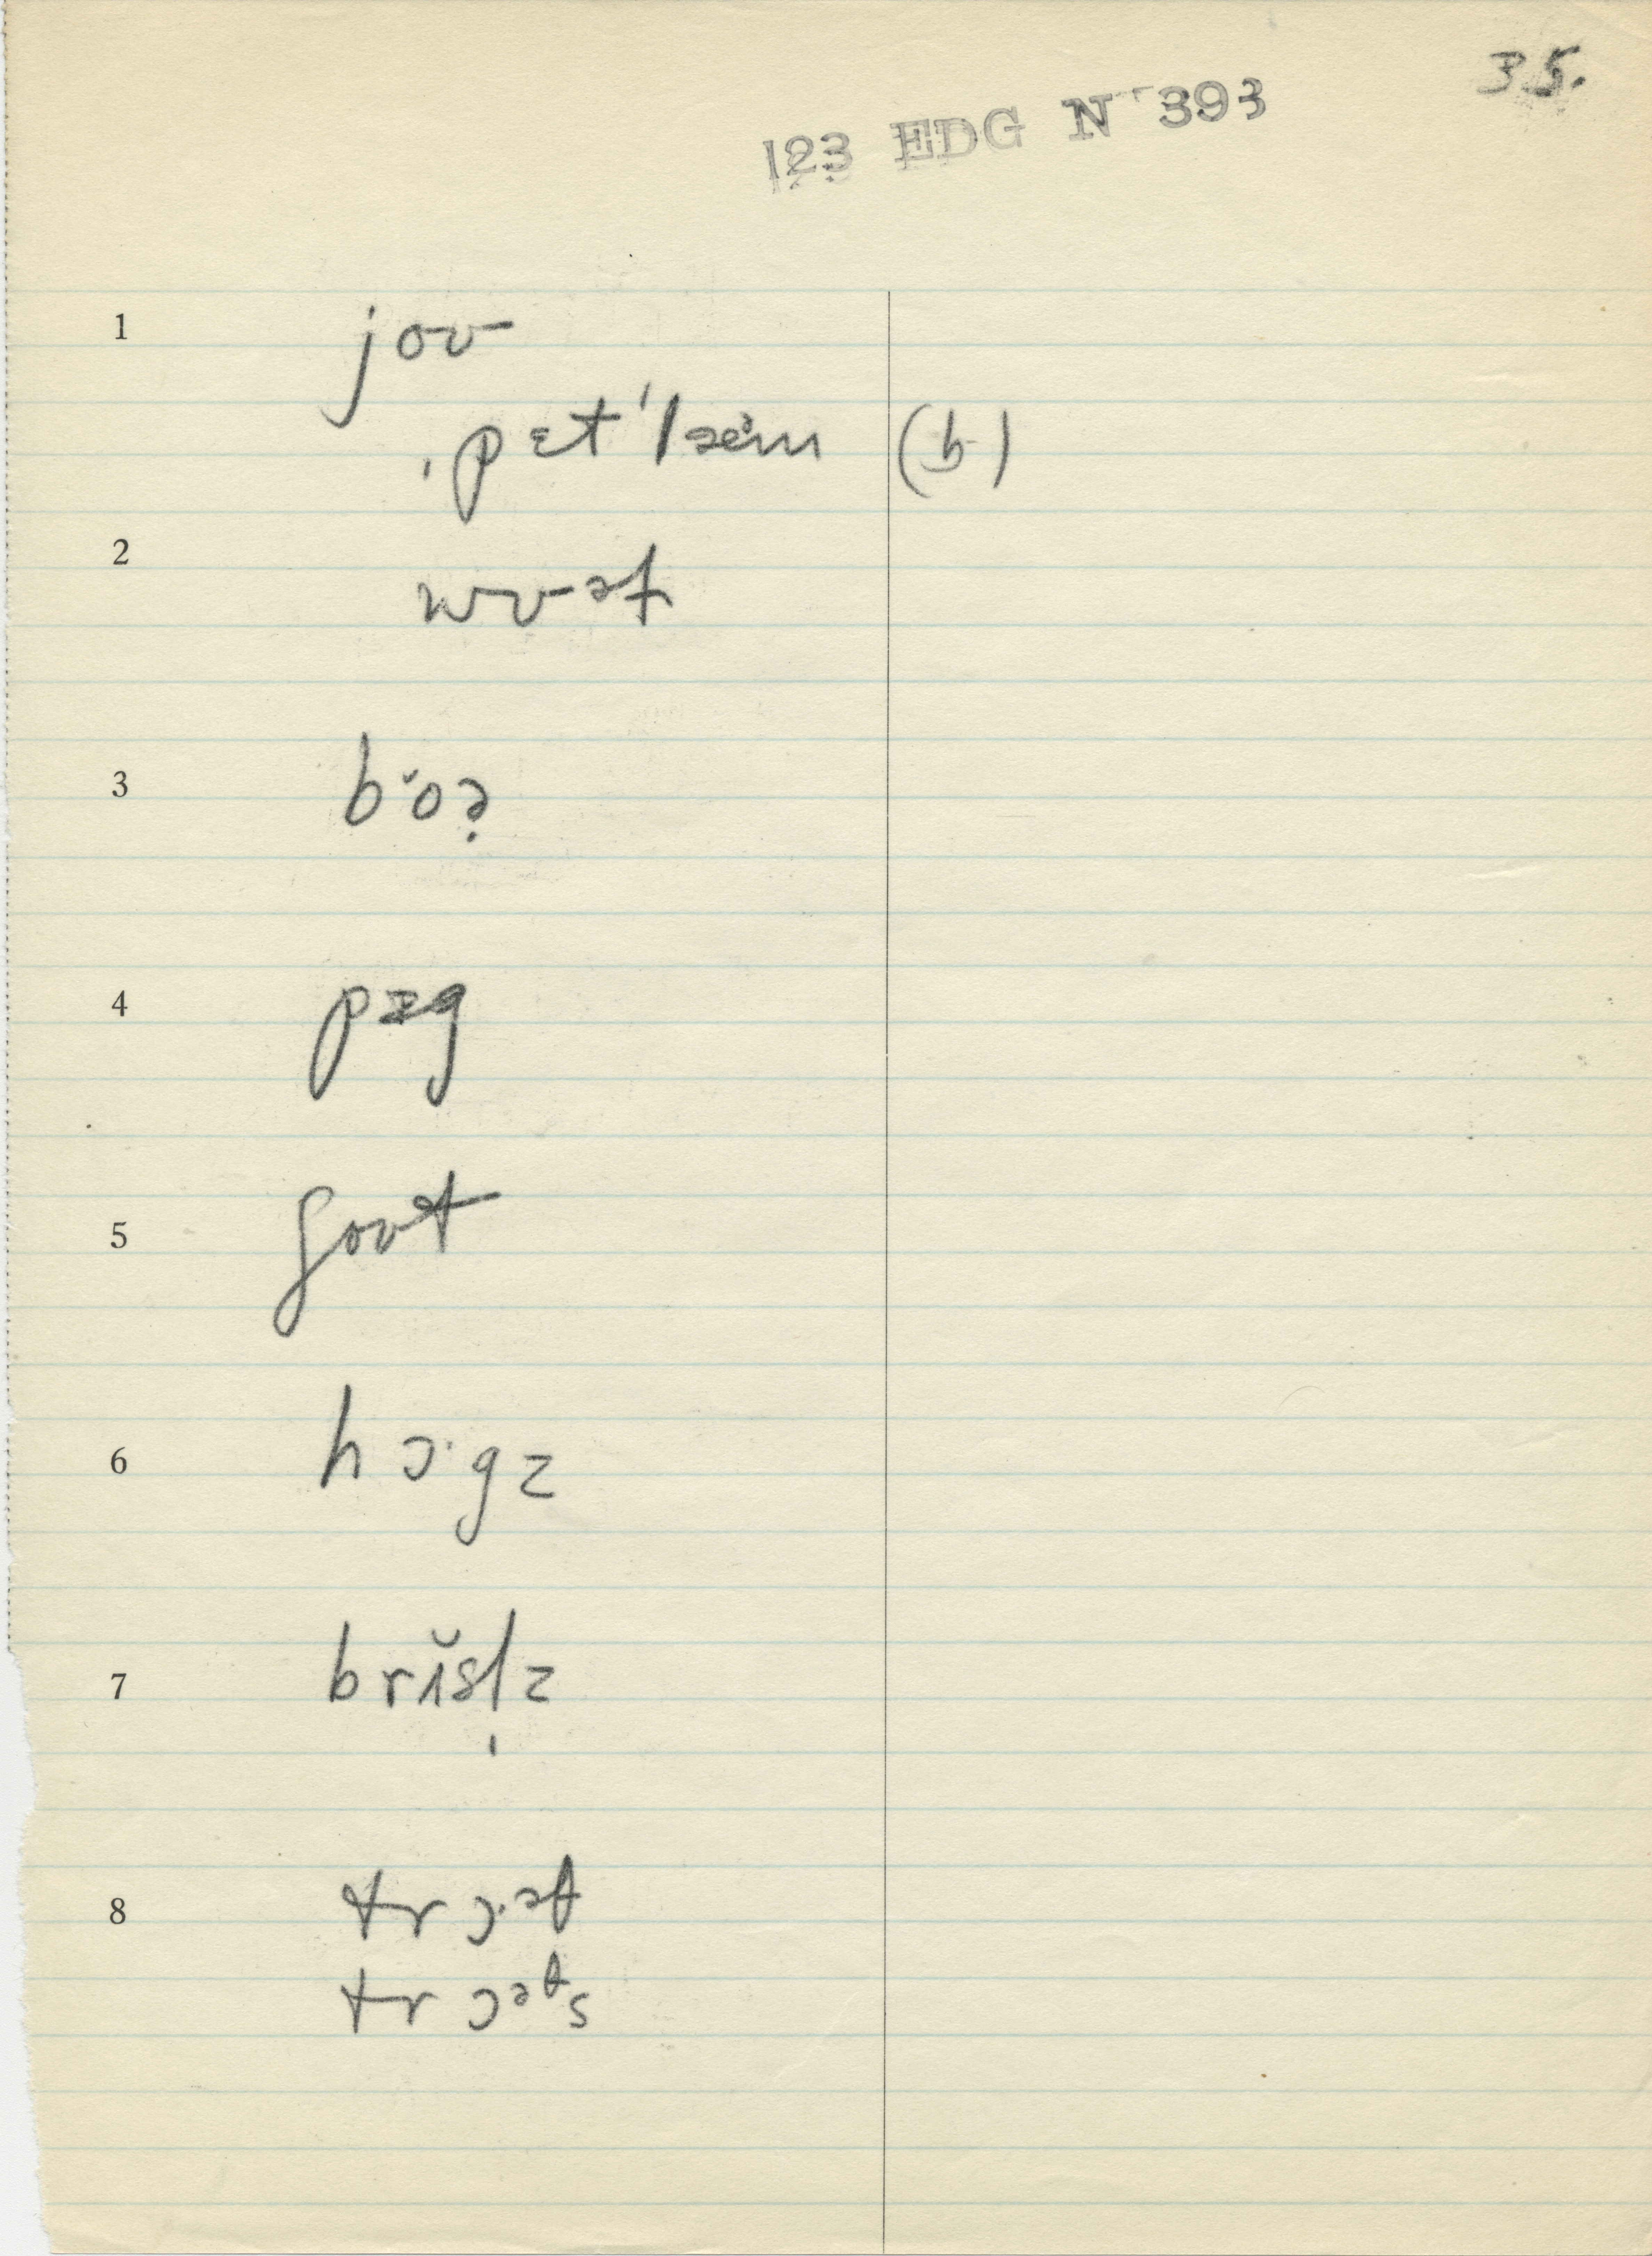 35.
123 EDG N 393
1 joʊ
ˌpɛtˈlzəm (b)
2 wʊət
3 bˑŏə̣
4 pɪg
5 goʊt
6 hɔˑgz
7 brĭsl̩z
8 trɔˑət
trɔəts